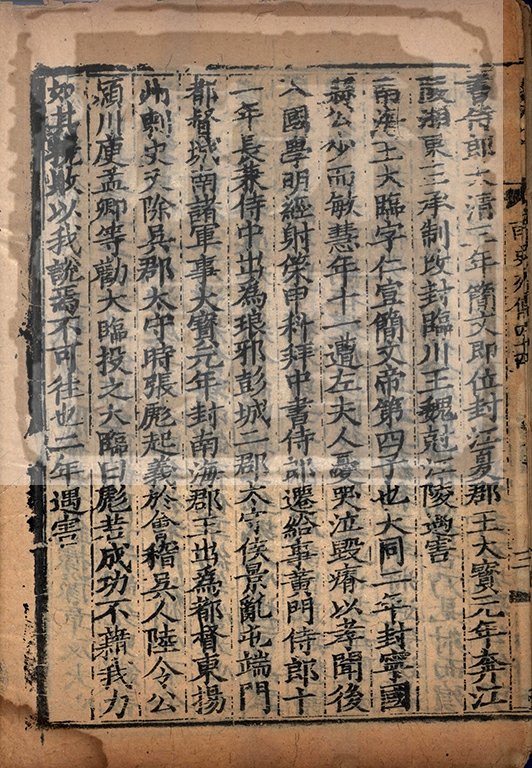 南史列傳四十四
書侍郎太清三年簡文即位封江夏郡王大寶元年奔江
陵湘東王承制改封臨川王魏尅江陵遇害
南海王大臨字仁宣簡文帝第四子也大同二年封寧國
縣公少而敏慧年十一遭左夫人憂哭泣毀瘠以孝聞後
入國學明經射策甲科拜中書侍郎遷給事黃門侍郎十
一年長兼侍中出為琅邪彭城二郡太守侯景亂屯端門
都督城南諸軍事大寶元年封南海郡王出為都督東揚
州刺史又除吳郡太守時張彪起義於會稽吳人陸令公
潁川庾孟卿等勸大臨投之大臨曰彪若成功不藉我力
如其撓敗以我說焉不可往也二年遇害